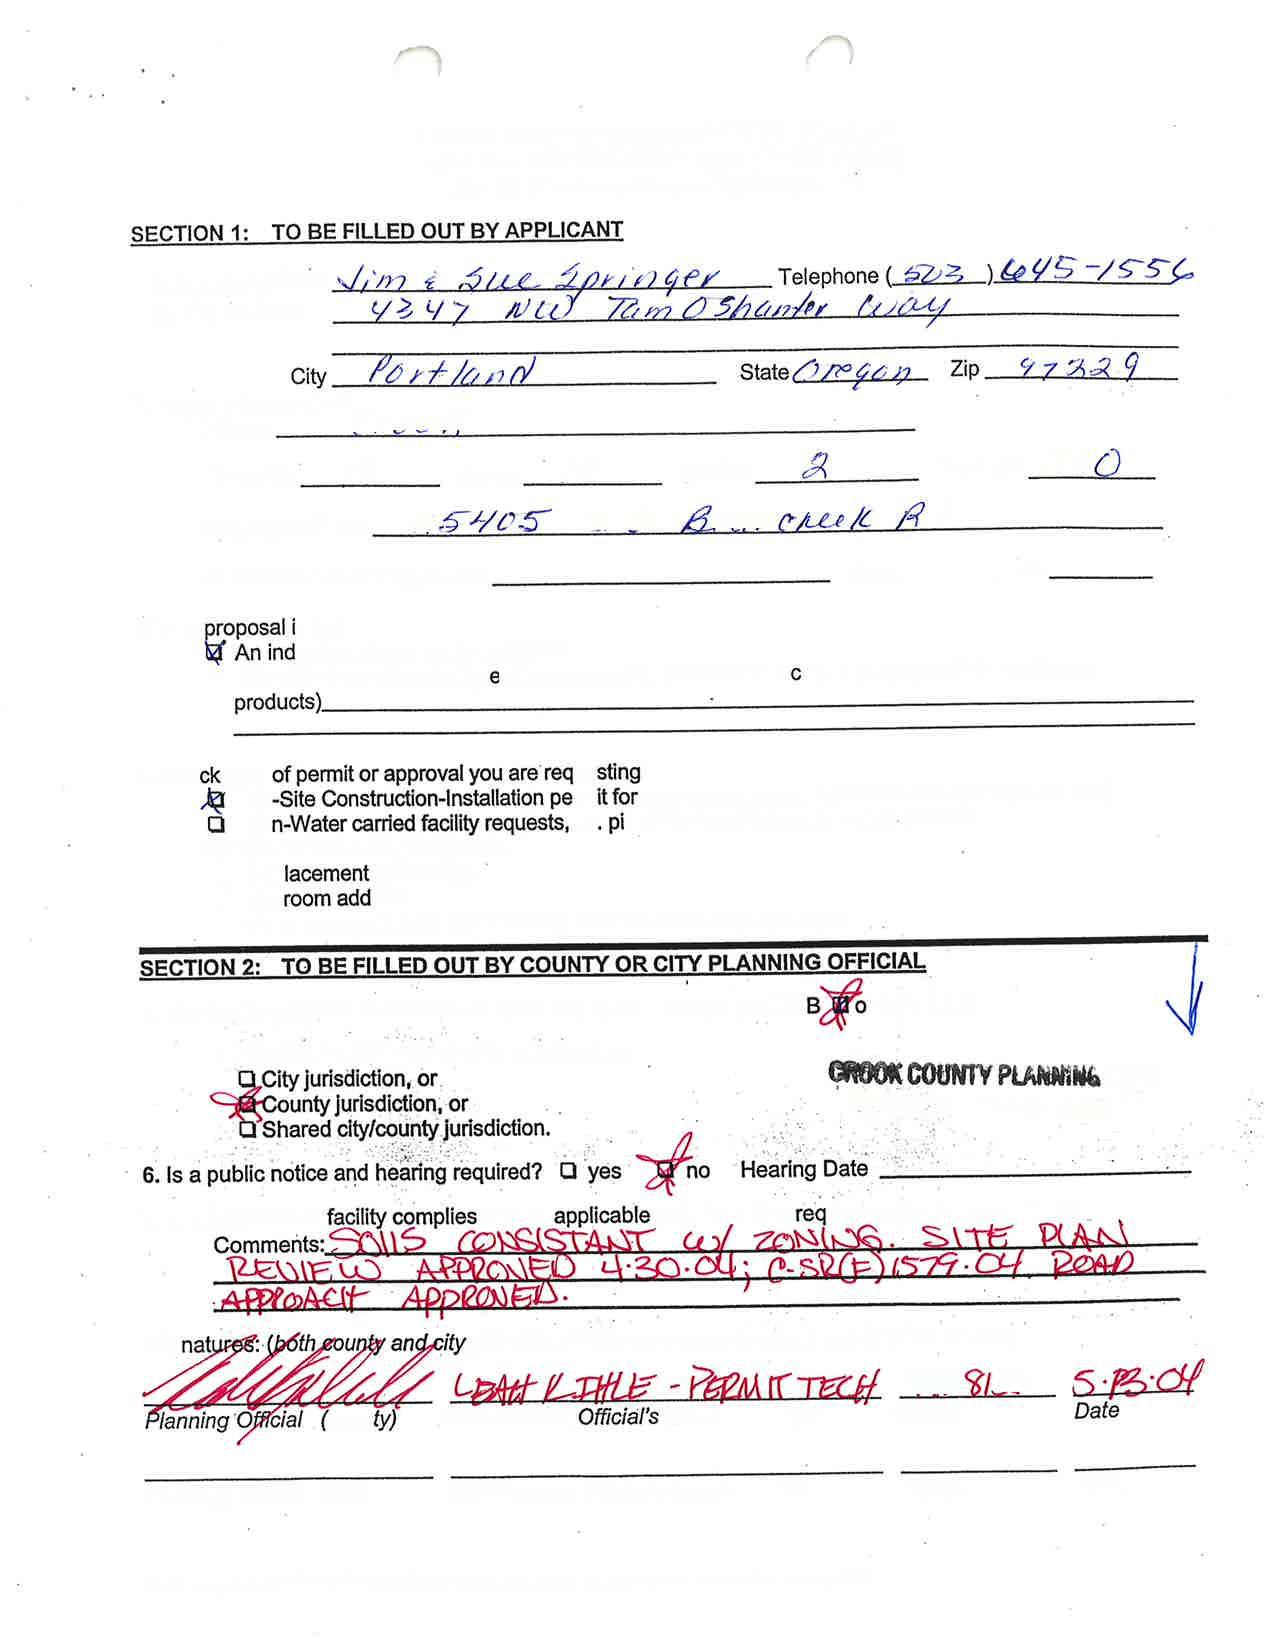 SECTION 1: TO BE FILLED OUT BY APPLICANT
Jim & Sue Springer Telephone (503) 645-1556
4347 NW Tam O Shanter Way
City Portland State Oregon Zip 97229
2 0
5405 B creek R
proposal i
An ind
e c
products)
ck of permit or approval you are req sting
-Site Construction-Installation pe it for
n-Water carried facility requests, . pi
lacement
room add
SECTION 2: TO BE FILLED OUT BY COUNTY OR CITY PLANNING OFFICIAL
B o
City jurisdiction, or
CROOK COUNTY PLANNING
County jurisdiction, or
Shared city/county jurisdiction.
6. Is a public notice and hearing required? yes no Hearing Date
facility complies applicable req
Comments: SOILS CONSISTANT W/ ZONING. SITE PLAN
REVIEW APPROVED 4.30.04; C-SR(F)1579.04. ROAD
APPROACH APPROVED.
natures: (both county and city
LEAH KIHLE - PERMIT TECH 81 5.13.04
Planning Official ( ty) Official's Date